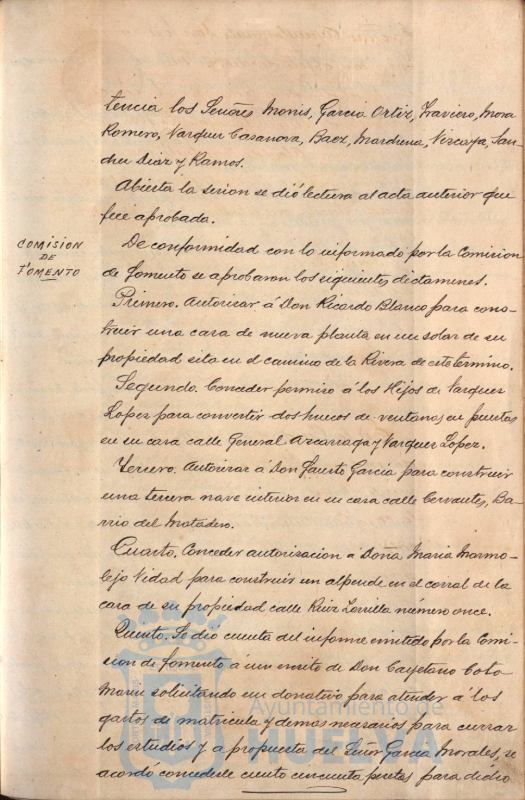 tencia los Señores Monis, Garcia Ortiz, Traviero, Mora
Romero, Vazquez Casanova, Baez, Mardrena, Vizcaya, San-
chez Diaz y Ramos.
Abierta la sesion se dió lectura al acta anterior que
fue aprobada.
COMISION
DE
FOMENTO
De conformidad con lo informado por la Comision
de Fomento se aprobaron los siguientes dictamenes.
Primero. Autorizar á Don Ricardo Blanco para cons-
truir una casa de nueva planta en un solar de su
propiedad sita en el camino de la Rivera de este termino.
Segundo. Conceder permiso á los Hijos de Vazquez
Lopez para convertir dos huecos de ventanas en puertas
en su casa calle General Azcarraga y Vazquez Lopez.
Tercero. Autorizar á Don Fausto Garcia para construir
una tercera nave interior en su casa calle Cervantes, Ba-
rrio del Matadero.
Cuarto. Conceder autorizacion a Doña Maria Marmo-
lejo Vidad para construir un alpende en el corral de la
casa de su propiedad calle Ruiz Zorrilla número once.
Quinto. Se dió cuenta del informe emitido por la Comi-
sion de fomento á un escrito de Don Cayetano Coto
Marin solicitando un donativo para atender á los
gastos de matricula y demas necesarios para cursar
los estudios y a propuesta del Señor Garcia Morales, se
acordó concederle ciento cincuenta pesetas para dicho
Ayuntamiento de
HUELVA